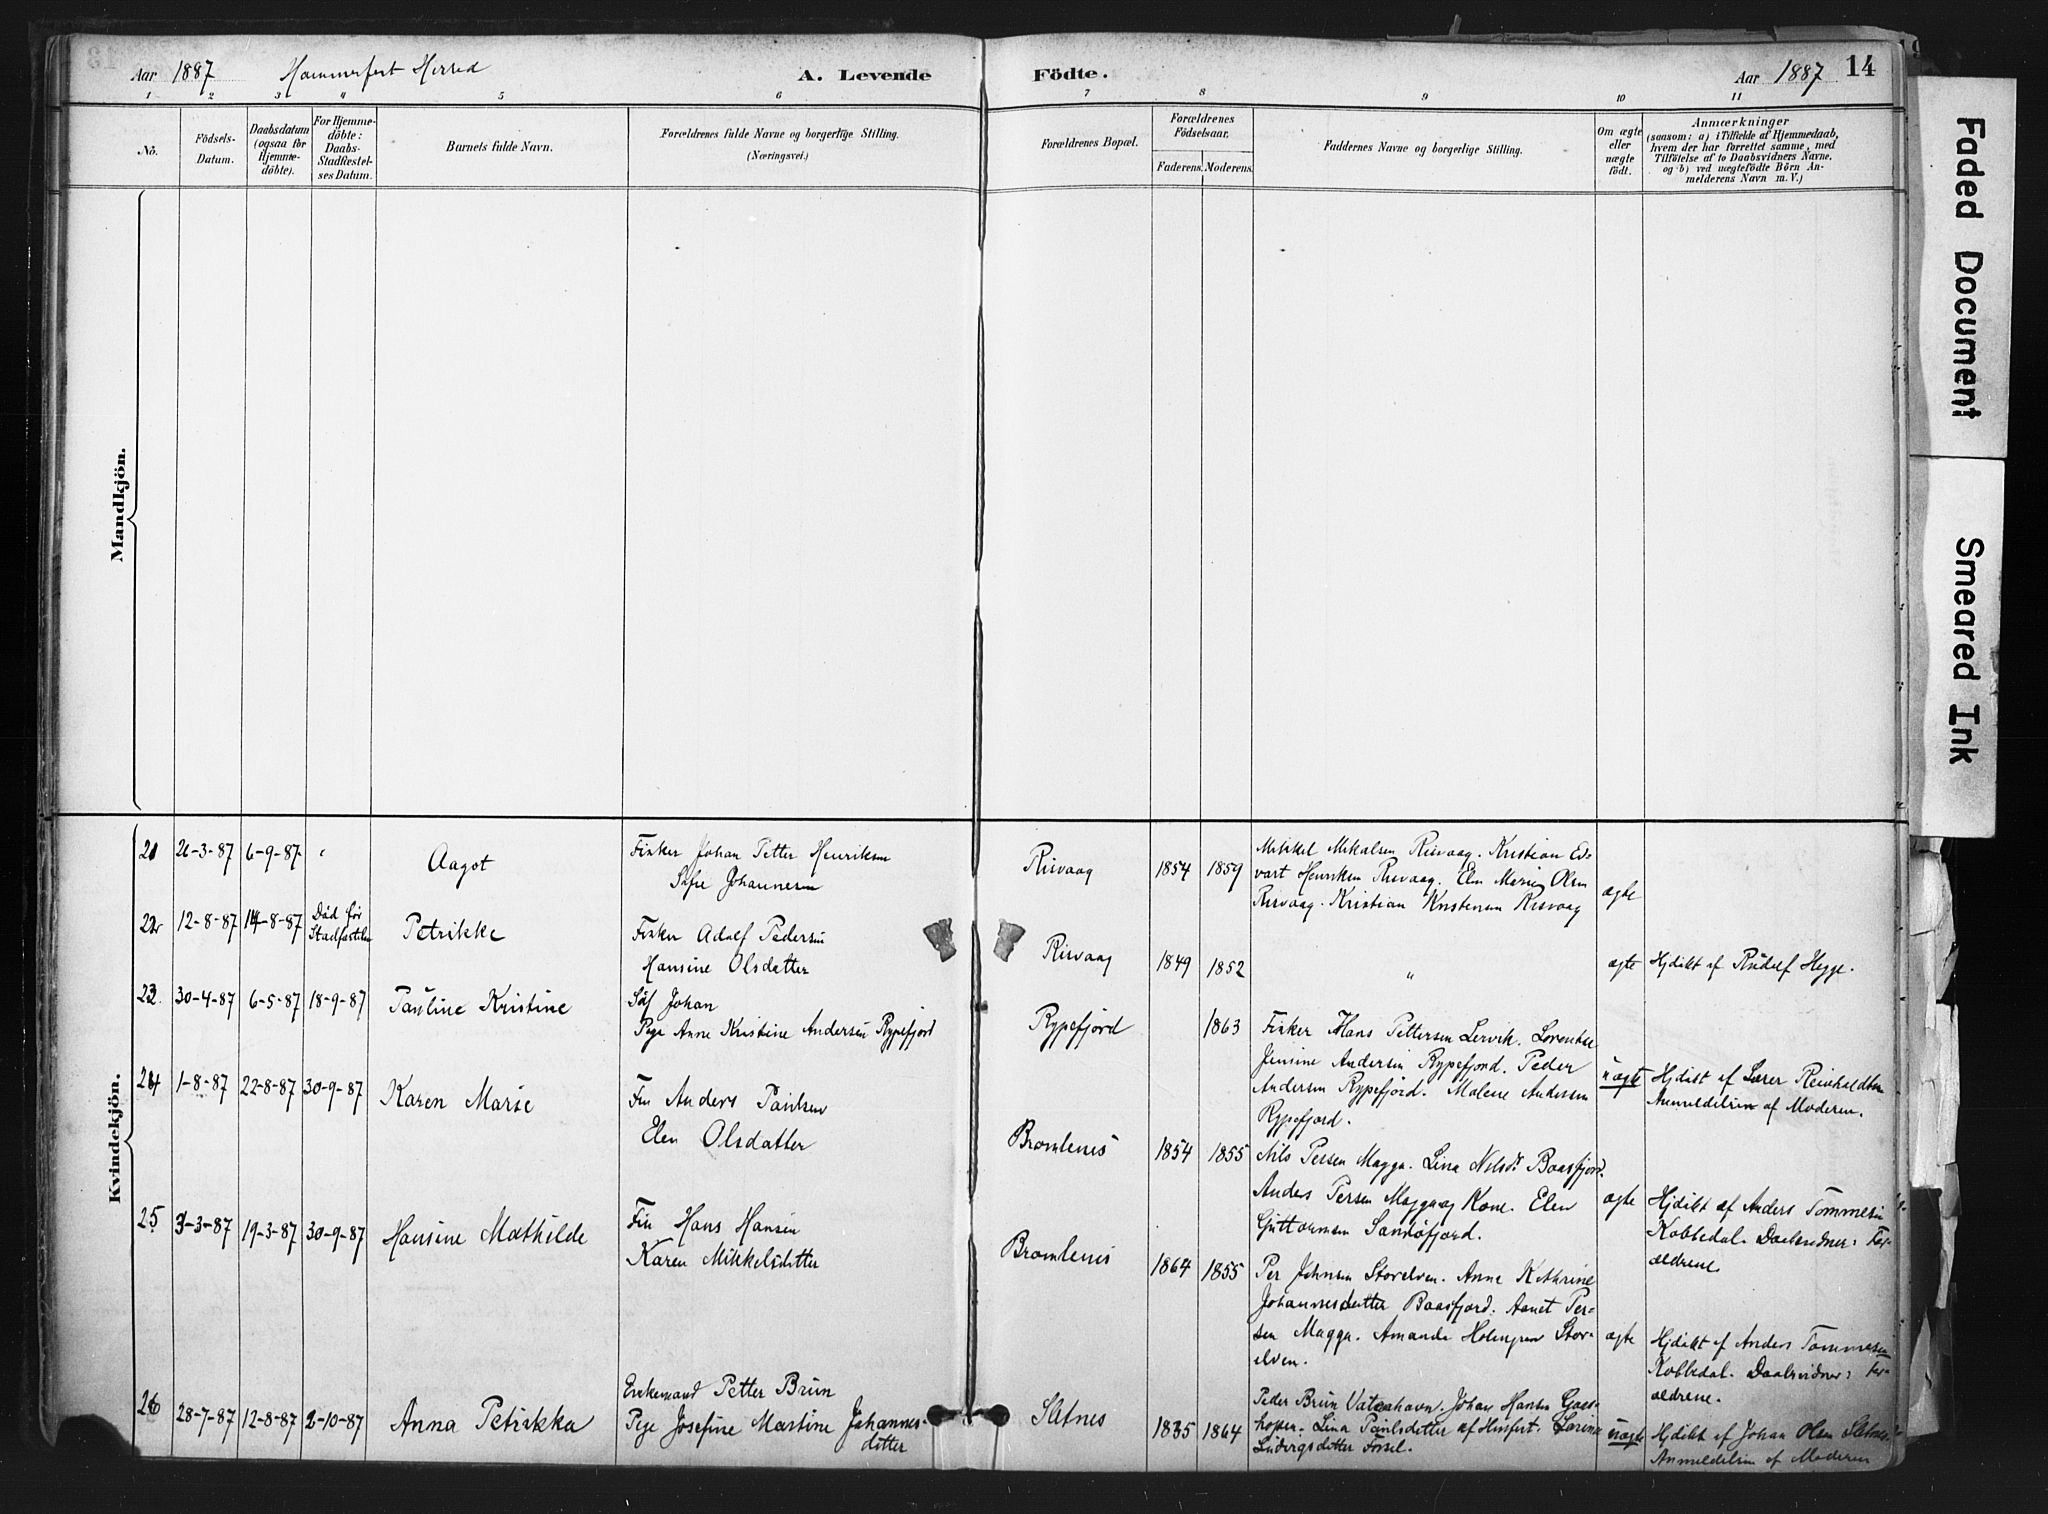 Aar 1887 Hammerfest Herred A. Levende Födte. Aar 1887 14
1 2 3 4 5 6 7 8 9 10 11
No.
Födsels-
Datum.
Daabsdatum
(ogsaa for
Hjemme-
döbte).
For Hjemme-
döbte:
Daabs-
Stadfæstel-
ses Datum.
Barnets fulde Navn.
Forældrenes fulde Navne og borgerlige Stilling.
(Næringsvei.)
Forældrenes Bopæl.
Forældrenes
Födselsaar.
Faderens. Moderens.
Faddernes Navne og borgerlige Stilling.
Om ægte
eller
uægte
födt.
Anmærkninger
(saasom: a) i Tilfælde af Hjemmedaab,
hvem der har forrettet samme, med
Tilföielse af to Daabsvidners Navne,
og b) ved uægtefödte Börn An-
melderens Navn m. V.)
Mandkjön.
Kvindekjön.
21 21-3-87 6-9-87 "
Aagot
Fisker Johan Petter Henriksen
Sofie Johannesen
Risvaag 1854 1859
Mikkel Mikalsen Risvaag. Kristian Ed-
vart Henriksen Risvaag. Elen Marie Olsen
Risvaag. Kristian Kristensen Risvaag
ægte
22 12-8-87 14-8-87
Död för
Stadfæstelsen
Petrikke
Fisker Adolf Pedersen
Hansine Olsdatter
Risvaag 1849 1852 "
ægte
Hjdøbt af Rudolf Hegge.
23 30-4-87 6-5-87 18-9-87
Pauline Kristine
Johan
Pige Anne Kristine Andersen Rypefjord
Rypefjord 1863
Fisker Hans Pettersen Lervik. Lorentse
Jensine Andersen Rypefjord. Peder
Andersen Rypefjord. Malene Andersen
Rypefjord.
uægte
Hjdøbt af Lærer Reinholdtsen
Anmeldelsen af Moderen.
24 1-8-87 22-8-87 30-9-87
Karen Marie
Fin Anders Paulsen
Elen Olsdatter
Bromlenes 1854 1855
Nils Persen Magga. Lina Nilsdt Baasfjord.
Anders Persen Magga og Kone. Elen
Guttormsen Sandøfjord.
ægte
Hjdøbt af Anders Tommesen
Kobbedal. Daabsvidner: For-
ældrene.
25 3-3-87 19-3-87 30-9-87
Hansine Mathilde
Fin Hans Hansen
Karen Mikkelsdatter
Bromlenes 1864 1855
Per Johnsen Storelven. Anne Kathrine
Johannesdatter Baasfjord. Aanet Per-
sen Magga. Amanda Holmgren Stor-
elven.
ægte
Hjdøbt af Anders Tommesen
Kobbedal. Daabsvidner: For-
ældrene.
26 28-7-87 12-8-87 2-10-87
Anna Petrikka
Enkemand Petter Brun
Pige Josefine Martine Johannes-
datter
Sletnes 1835 1864
Peder Brun Vatenhavn. Johan Hansen Gaas-
hopen. Lina Paulsdatter af Hmfest. Lorine
Ludvigsdatter Forsøl.
uægte
Hjdøbt af Johan Olsen Sletnes.
Anmeldelsen af Moderen
Faded Document
Smeared Ink